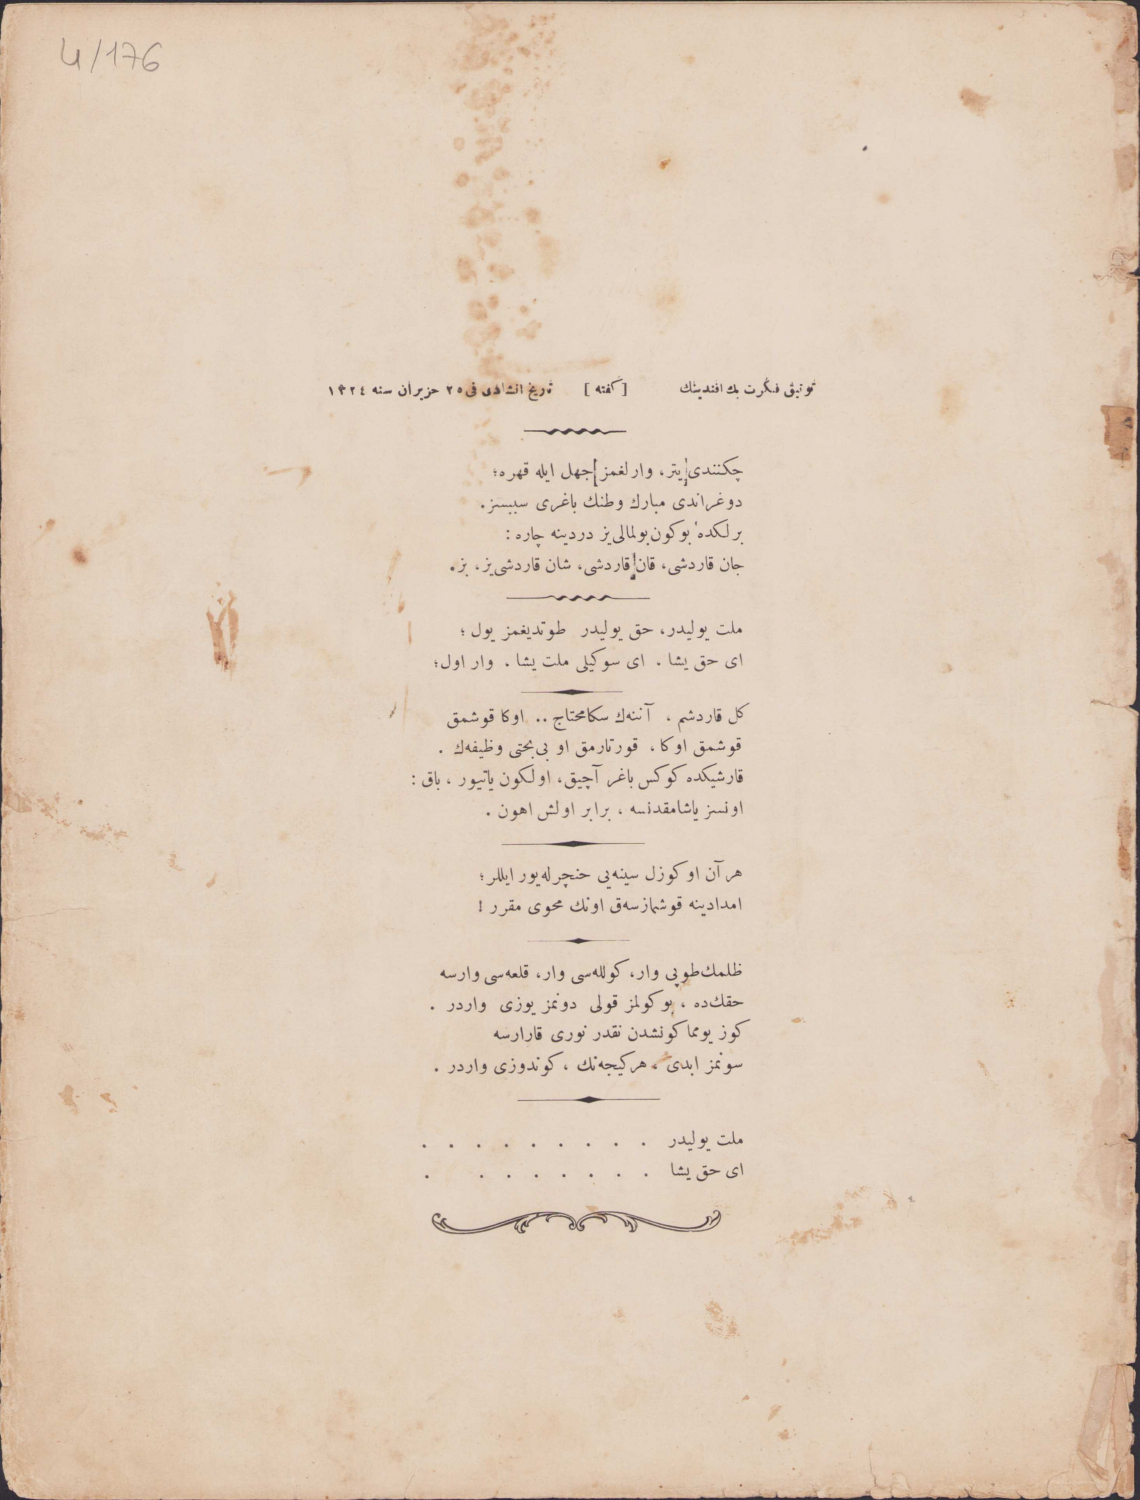 4/176
توفیق فكرت بك افندینك [كفته] تاریخ انشادی فی ٢٥ حزیران سنه ١٣٢٤
چكنندی یتر، وارلغمز جهل ایله قهره؛
دوغراندی مبارك وطنك باغری سببسز.
برلكده بوكون بولمالی‌یز دردینه چاره :
جان قاردشی، قان قاردشی، شان قاردشی‌یز، بز.
ملت یولیدر، حق یولیدر طوتدیغمز یول ؛
ای حق یشا . ای سوكیلی ملت یشا . وار اول؛
كل قاردشم ، آننه‌ك سكا محتاج .. اوكا قوشمق
قوشمق اوكا ، قورتارمق او بی‌بختی وظیفه‌ك .
قارشیكده كوكس باغر آچیق، اولكون یاتیور ، باق :
اونسز یاشامقدنسه ، برابر اولش اهون .
هر آن او كوزل سینه‌یی خنچرله‌یور ایللر؛
امدادینه قوشمازسه‌ق اونك محوی مقرر !
ظلمك طوپی وار، كولله‌سی وار، قلعه‌سی وارسه
حقك‌ده ، بوكولمز قولی دونمز یوزی واردر .
كوز یوما كونشدن نقدر نوری قارارسه
سونمز ابدی ، هر كیجه‌نك ، كوندوزی واردر .
ملت یولیدر . . . . . . . . .
ای حق یشا . . . . . . . .